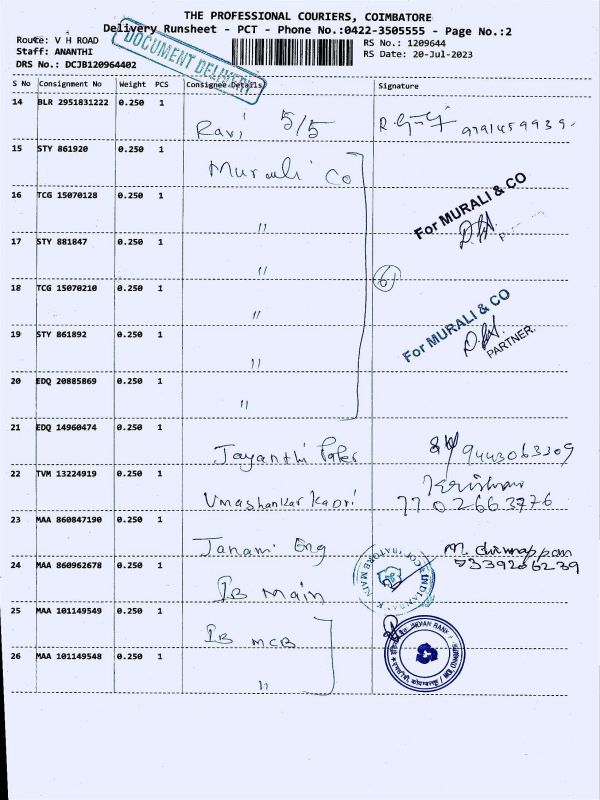 THE PROFESSIONAL COURIERS, COIMBATORE
Delivery Runsheet - PCT - Phone No.:0422-3505555 - Page No.:2
Route: V H ROAD
RS No.: 1209644
Staff: ANANTHI
RS Date: 20-Jul-2023
DRS No.: DCJB120964402
DOCUMENT DELIVERY
S No Consignment No Weight PCS Consignee Details Signature
14 BLR 2951831222 0.250 1
Ravi 5/5 9791459939
15 STY 861920 0.250 1
Murali Co
16 TCG 15070128 0.250 1
"
For MURALI & CO
17 STY 881847 0.250 1
"
6
18 TCG 15070210 0.250 1
"
For MURALI & CO
PARTNER.
19 STY 861892 0.250 1
"
20 EDQ 20885869 0.250 1
"
21 EDQ 14960474 0.250 1
Jayanthi 9443063309
22 TVM 13224919 0.250 1
Umashankar Kapri Krishnan
7702663776
23 MAA 860847190 0.250 1
Janani Eng M. Chinnappan
9339206239
24 MAA 860962678 0.250 1
IB Main
INDIAN BANK
COIMBATORE MAIN
25 MAA 101149549 0.250 1
IB MCB
INDIAN BANK
26 MAA 101149548 0.250 1
"